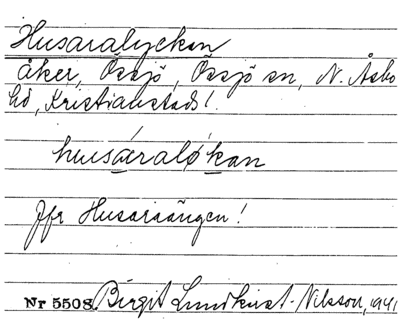 Husaralyckan
åker, Össjö, Össjö sn, N. Åsbo
hd, Kristianstads l.
husáralǫ́kan
Jfr Husaraängen!
Nr 5508. Birgit Lundkvist-Nilsson, 1941